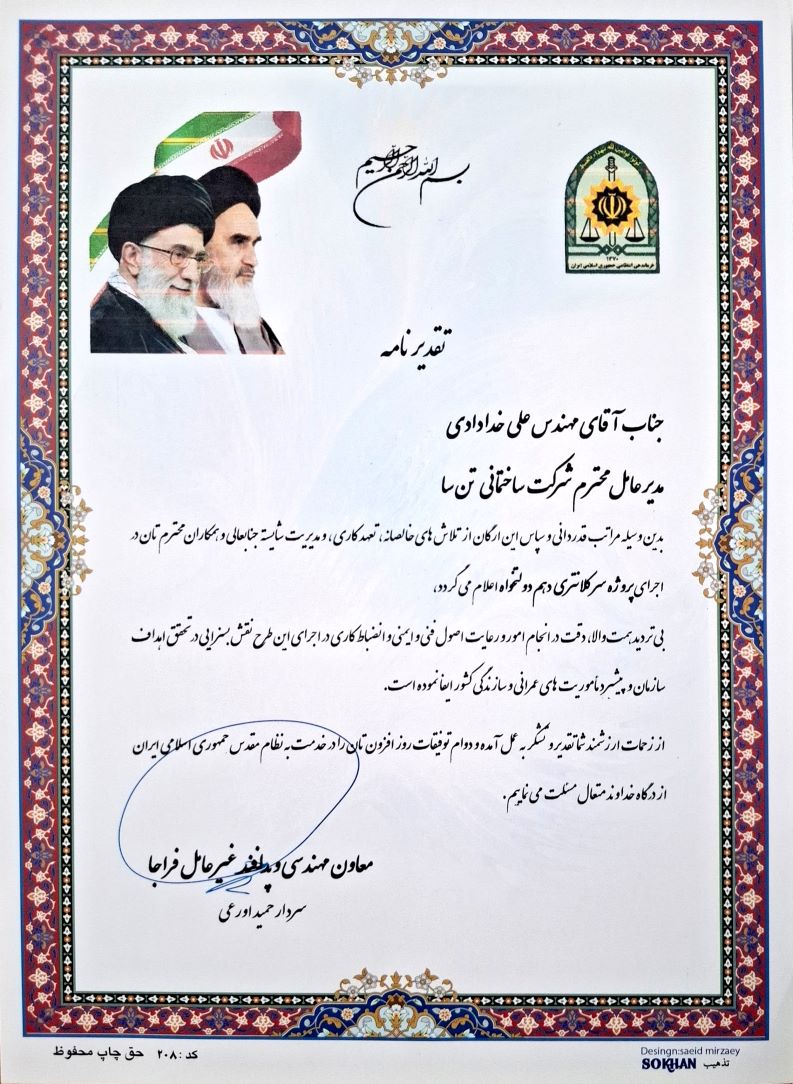 بسم الله الرحمن الرحیم
۱۳۷۰
فرماندهی انتظامی جمهوری اسلامی ایران
تقدیر نامه
جناب آقای مهندس علی خدادادی
مدیر عامل محترم شرکت ساختمانی تن سا
بدین وسیله مراتب قدردانی و سپاس این ارگان از تلاش های خالصانه، تعهد کاری، و مدیریت شایسته جنابعالی و همکاران محترم تان در
اجرای پروژه سرکلانتری دهم دولتخواه اعلام می گردد،
بی تردید همت والا، دقت در انجام امور و رعایت اصول فنی و ایمنی و انضباط کاری در اجرای این طرح نقش بسزایی در تحقق اهداف
سازمان و پیشبرد مأموریت های عمرانی و سازندگی کشور ایفا نموده است.
از زحمات ارزشمند شما تقدیر و تشکر به عمل آمده و دوام توفیقات روز افزون تان را در خدمت به نظام مقدس جمهوری اسلامی ایران
از درگاه خداوند متعال مسئلت می نماییم.
معاون مهندسی و پدافند غیر عامل فراجا
سردار حمید اورعی
کد : ۲۰۸ حق چاپ محفوظ
Desingn:saeid mirzaey
تذهیب SOKHAN